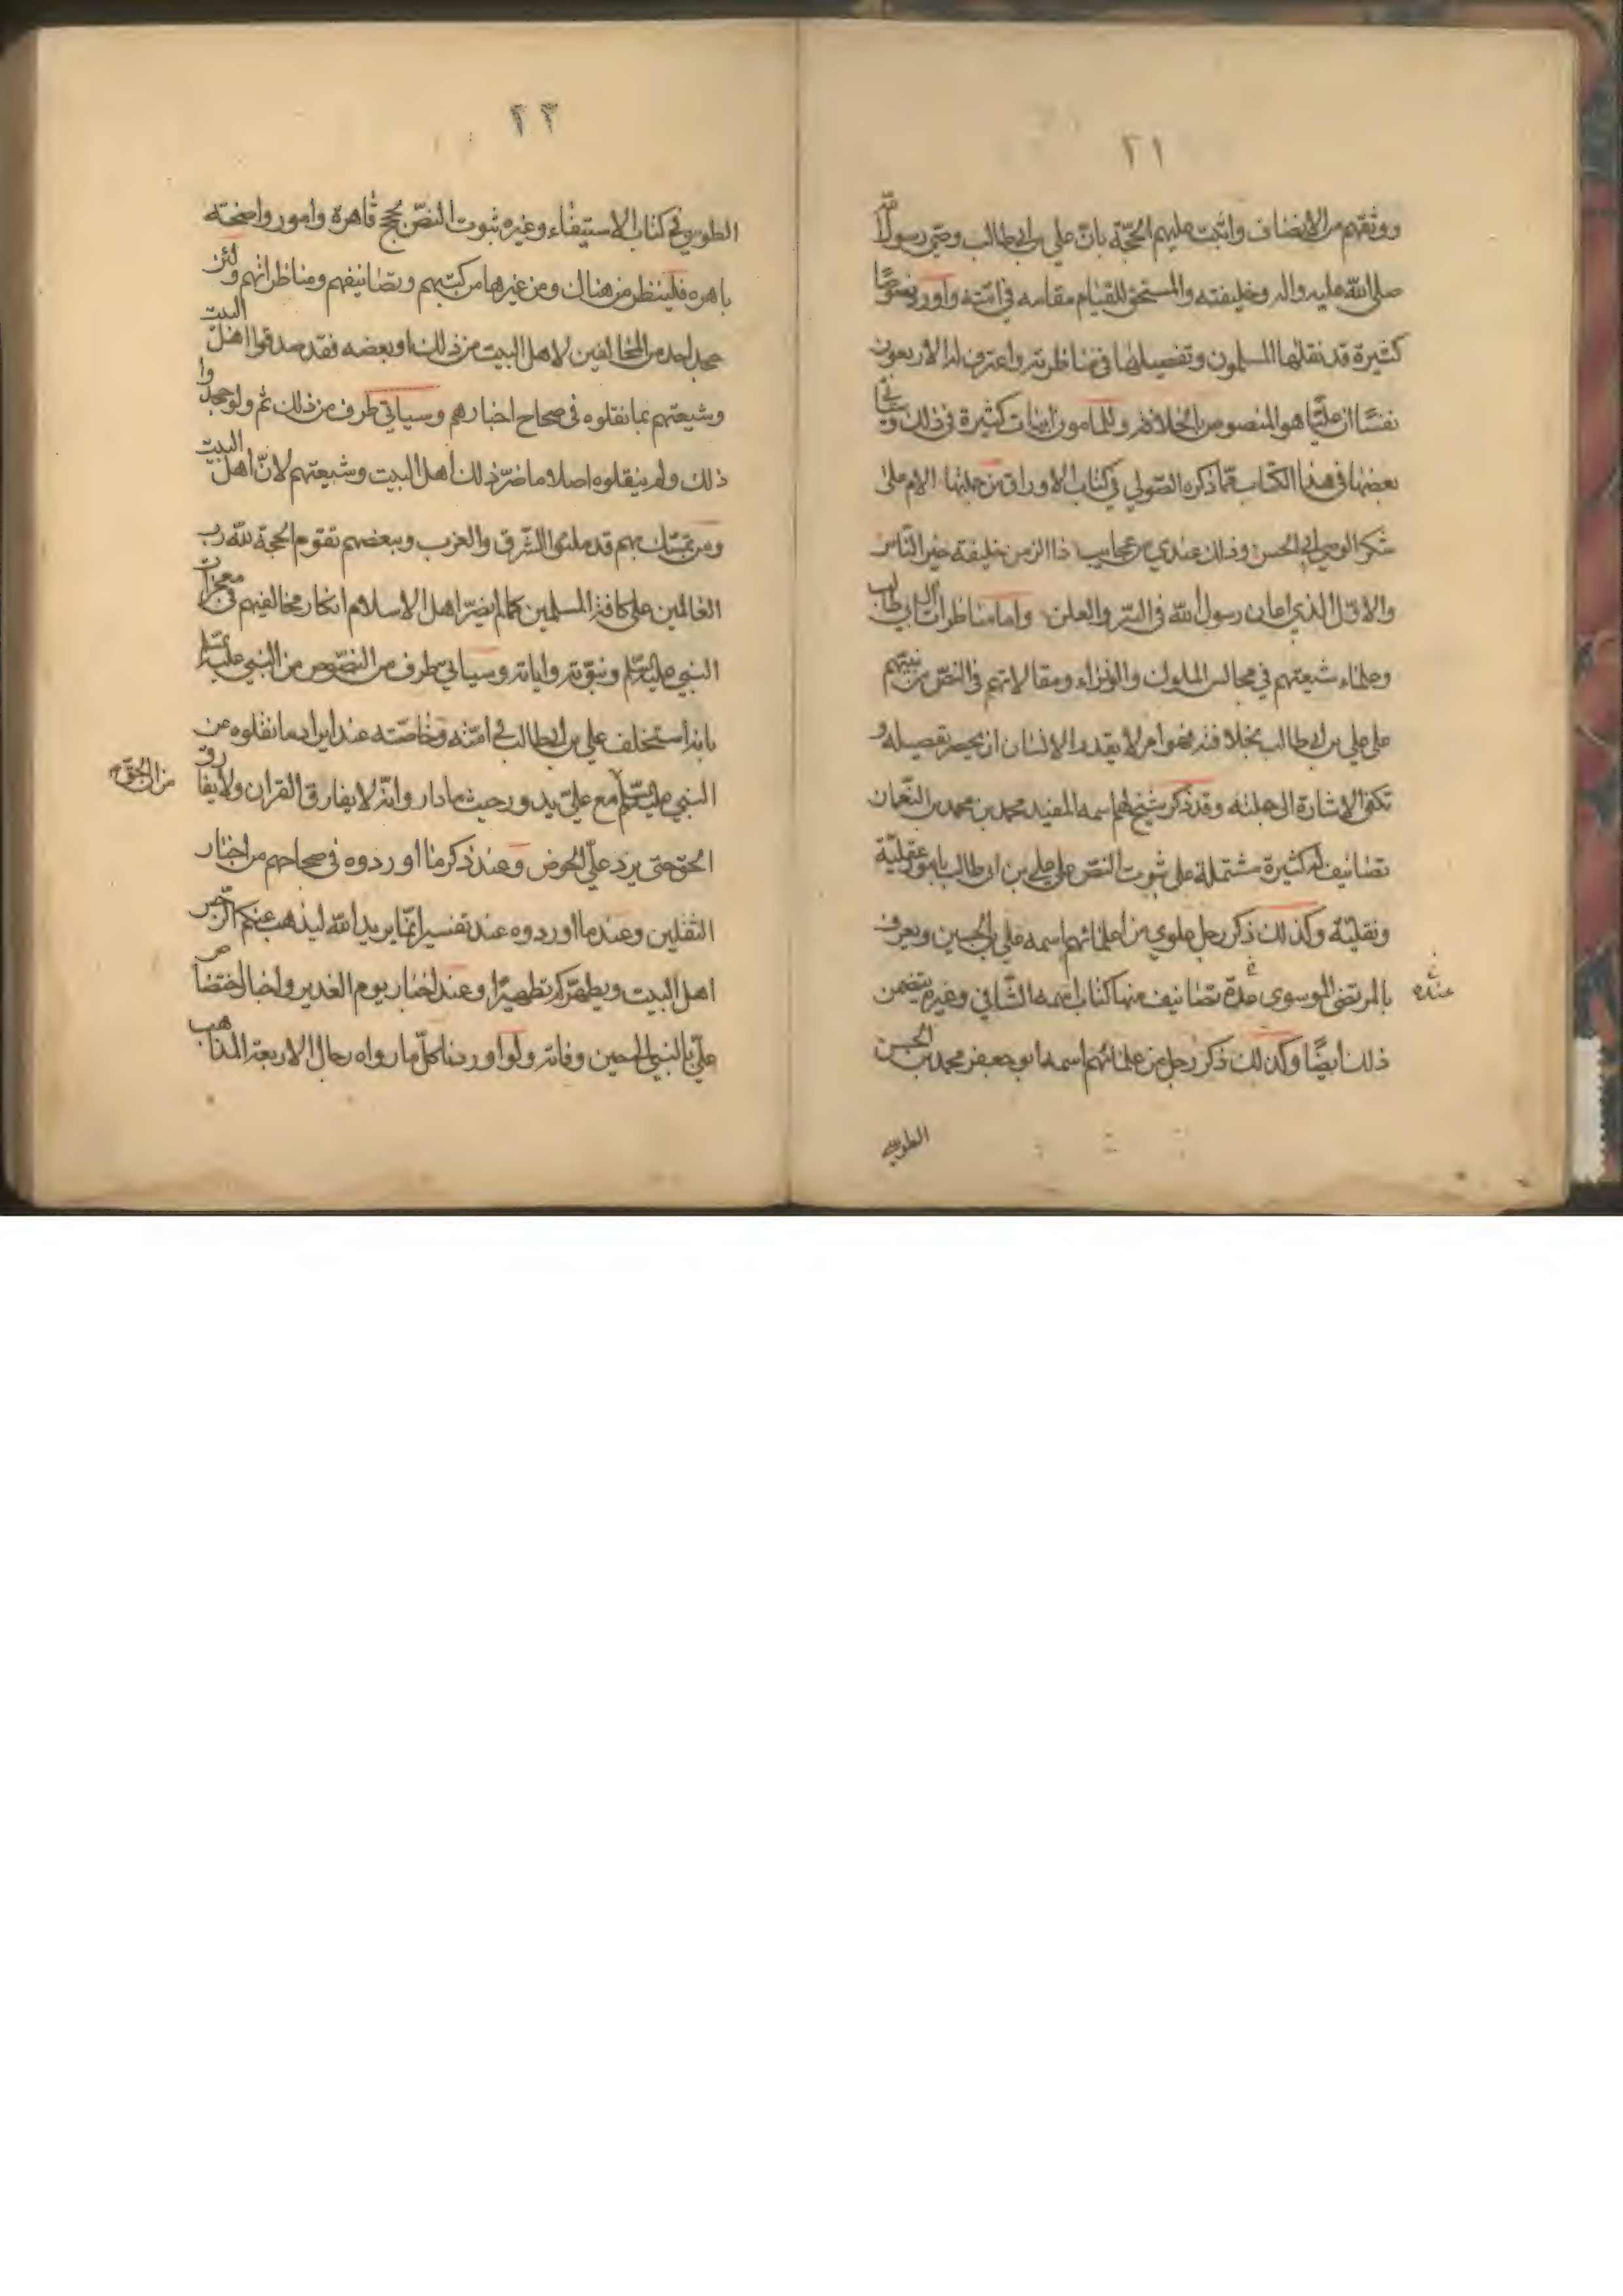 ٢١
ووثقهم من الانصاف واثبت عليهم الحجّة بانّ علي بن ابي طالب وصيّ رسول الله
صلى الله عليه واله وخليفته والمستحق للقيام مقامه في امّته واورد نصوصًا
كثيرة قد نقلها المسلمون وتفصيلها في مناظرته واعترف له الاربعون
نفسًا ان عليًّا هو المنصوص بالخلافة وللمامون ابيات كثيرة في ذلك وسيأتي
بعضها في هذا الكتاب فمّا ذكره الصّولي في كتاب الاوراق من جملتها الام على
شكر الوصي ابي الحسن وذلك عندي من عجايب ذا الزمن خليفة خير النّاس
والاوّل الذي اعان رسول الله في السّر والعلن وامّا مناظرات ال ابي طالب
وعلماء شيعتهم في مجالس الملوك والوزراء ومقالاتهم في النصّ من نبيّهم
على علي بن ابي طالب بخلافته فهو امر لا يقدر الانسان ان يحصر تفصيله و
تكفي الاشارة الى جملته وقد ذكر شيخ لهم اسمه المفيد محمد بن محمد بن النّعمان
تصانيف له كثيرة مشتملة على ثبوت النصّ على علي بن ابي طالب بامور عقليّة
ونقليّة وكذلك ذكر رجل علوي من علمائهم اسمه علي بن الحسين ويعرف
بالمرتضى الموسوي عدّة تصانيف منها كتاب اسمه الشّافي وغيره يتضمن
عنده
ذلك ايضًا وكذلك ذكر رجل من علمائهم اسمه ابو جعفر محمد بن الحسن
الطوسي
٢٢
الطوسي في كتاب الاستيفاء وغيره ثبوت النصّ بحجج قاهرة وامور واضحة
باهره فلينظر من هناك ومن غيرها من كتبهم وتصانيفهم ومناظراتهم ولئن
جحد احد من المخالفين لاهل البيت من ذلك او بعضه فقد صدقوا اهل البيت
وشيعتهم بما نقلوه في صحاح اخبارهم وسياتي طرف من ذلك ثم ولو جحدوا
ذلك ولم ينقلوه اصلا ما ضرّ ذلك اهل البيت وشيعتهم لانّ اهل البيت
ومن تمسّك بهم قد ملئوا الشّرق والغرب وببعضهم تقوم الحجة لله رب
العالمين على كافة المسلمين كما لم يضرّ اهل الاسلام انكار مخالفيهم في معجزات
النبي عليه السّلم ونبوّته واياته وسياتي طرف من النصّوص من النبي عليه السّلم
بانه استخلف علي بن ابي طالب في امّته وخاصّته عند ايراد ما نقلوه عن
النبي عليه السّلم مع عليّ يدور حيث ما دار وانّه لا يفارق القران ولا يفارق
من الحقّ
الحق حتى يرد عليّ الحوض وعند ذكر ما اوردوه في صحاحهم من اخبار
الثقلين وعند ما اوردوه عند تفسير انّما يريد الله ليذهب عنكم الرّجس
اهل البيت ويطهّركم تطهيرًا وعند اخبار يوم الغدير واخبار اختصاص
عليّ بالنبي الى حين وفاته ولو اوردنا كلّ ما رواه رجال الاربعة المذاهب